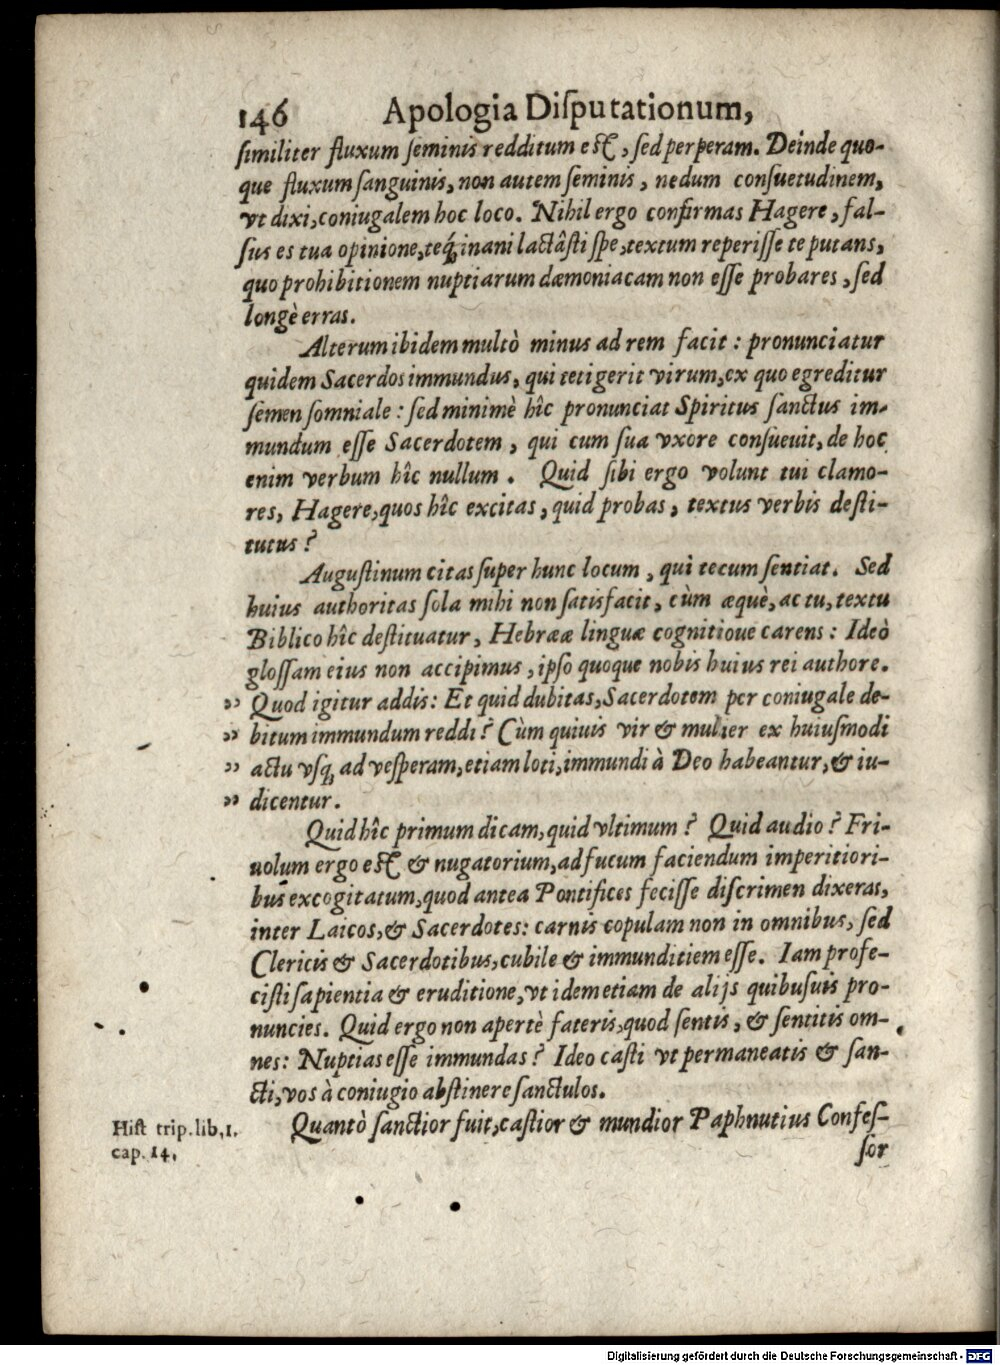 146 Apologia Diſputationum,
ſimiliter fluxum ſeminis redditum eſt, ſed perperam. Deinde quo-
que fluxum ſanguinis, non autem ſeminis, nedum conſuetudinem,
vt dixi, coniugalem hoc loco. Nihil ergo confirmas Hagere, fal-
ſus es tua opinione, teq́; inani lactâſti ſpe, textum reperiſſe te putans,
quo prohibitionem nuptiarum dæmoniacam non eſſe probares, ſed
longè erras.
Alterum ibidem multò minus ad rem facit: pronunciatur
quidem Sacerdos immundus, qui tetigerit virum, ex quo egreditur
ſemen ſomniale: ſed minimè hîc pronunciat Spiritus ſanctus im-
mundum eſſe Sacerdotem, qui cum ſua vxore conſueuit, de hoc
enim verbum hîc nullum. Quid ſibi ergo volunt tui clamo-
res, Hagere, quos hîc excitas, quid probas, textus verbis deſti-
tutus?
Auguſtinum citas ſuper hunc locum, qui tecum ſentiat. Sed
huius authoritas ſola mihi non ſatisfacit, cùm æquè, ac tu, textu
Biblico hîc deſtituatur, Hebrææ linguæ cognitioue carens: Ideò
gloſſam eius non accipimus, ipſo quoque nobis huius rei authore.
„ Quod igitur addis: Et quid dubitas, Sacerdotem per coniugale de-
„ bitum immundum reddi? Cùm quiuis vir & mulier ex huiuſmodi
„ actu vſq; ad veſperam, etiam loti, immundi à Deo habeantur, & iu-
„ dicentur.
Quid hîc primum dicam, quid vltimum? Quid audio? Fri-
uolum ergo eſt & nugatorium, ad fucum faciendum imperitiori-
bus excogitatum, quod antea Pontifices feciſſe diſcrimen dixeras,
inter Laicos, & Sacerdotes: carnis copulam non in omnibus, ſed
Clericis & Sacerdotibus, cubile & immunditiem eſſe. Iam profe-
ciſti ſapientia & eruditione, vt idem etiam de alijs quibuſuis pro-
nuncies. Quid ergo non apertè fateris, quod ſentis, & ſentitis om-
nes: Nuptias eſſe immundas? Ideo caſti vt permaneatis & ſan-
cti, vos à coniugio abſtinere ſanctulos.
Quantò ſanctior fuit, caſtior & mundior Paphnutius Confeſ-
Hiſt trip. lib, 1.
cap. 14.
ſor
Digitalisierung gefördert durch die Deutsche Forschungsgemeinschaft - DFG